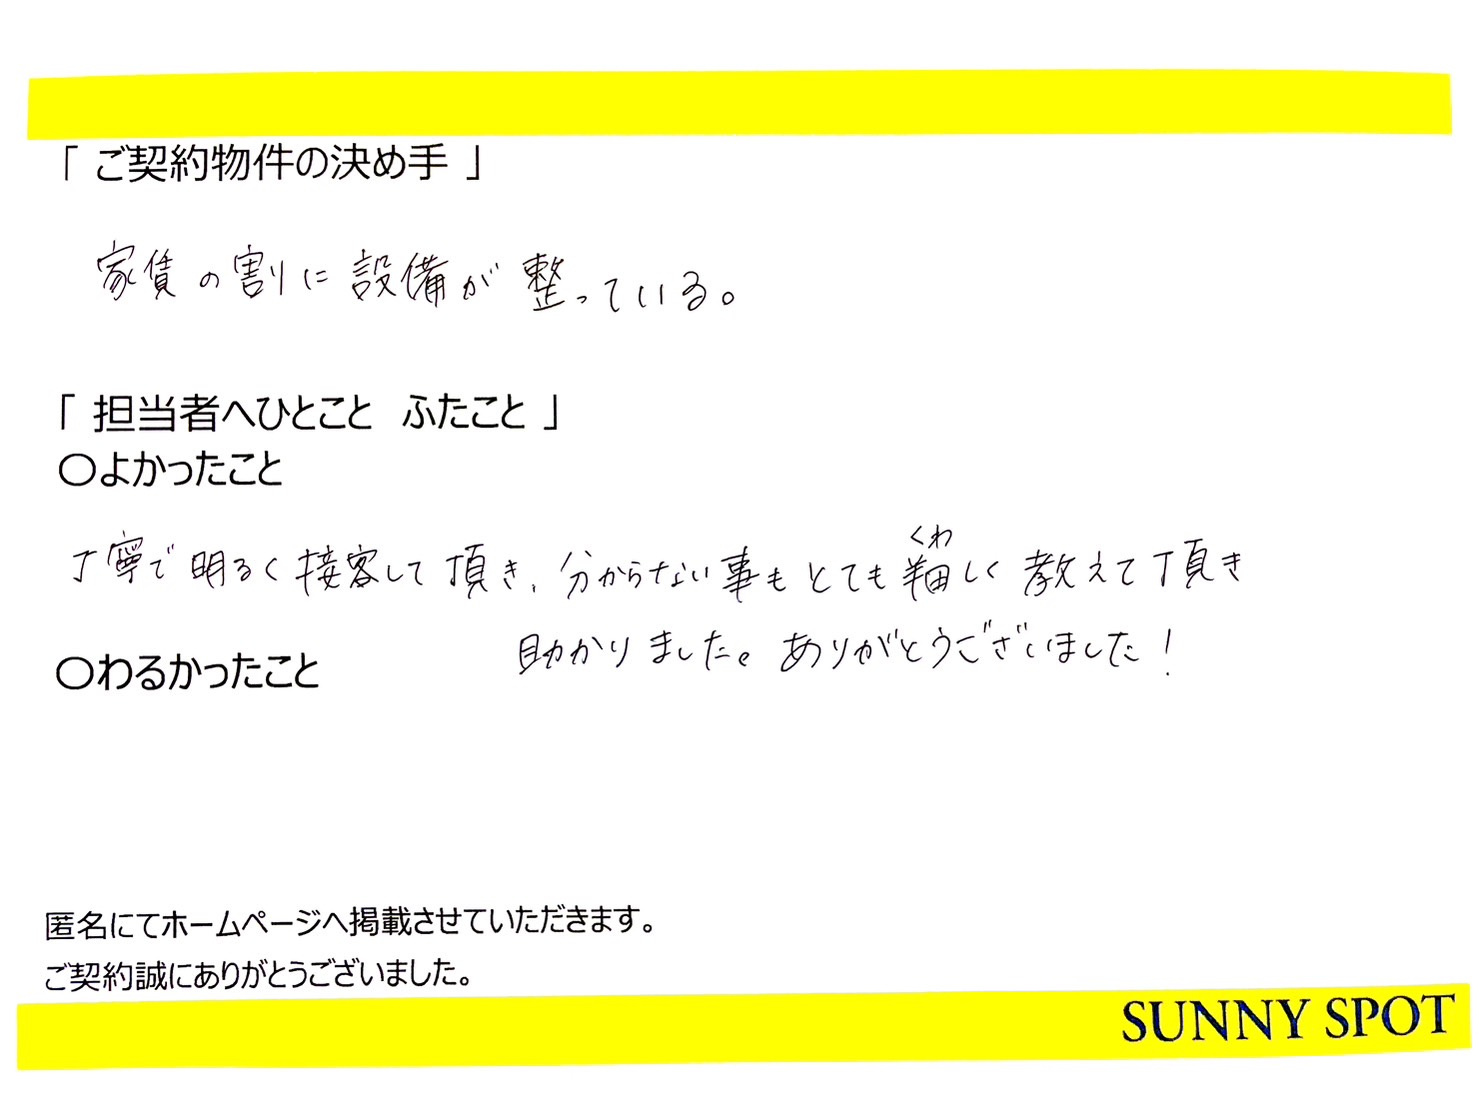 「 ご契約物件の決め手 」
家賃の割に設備が整っている。
「 担当者へひとこと ふたこと 」
〇よかったこと
くわ
丁寧で明るく接客して頂き、分からない事もとても詳しく教えて頂き
助かりました。ありがとうございました！
〇わるかったこと
匿名にてホームページへ掲載させていただきます。
ご契約誠にありがとうございました。
SUNNY SPOT